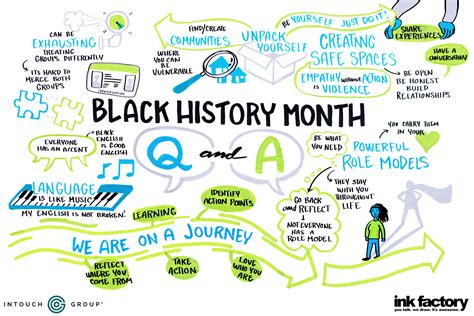 CAN BE
EXHAUSTING
TREATING
GROUPS DIFFERENTLY
IT'S HARD TO
MERGE BOTH
GROUPS
FIND/CREATE
COMMUNITIES
WHERE YOU
CAN BE
VULNERABLE
UNPACK
YOURSELF
BE YOURSELF JUST DO IT!
CREATING
SAFE SPACES
EMPATHY WITHOUT ACTION
IS VIOLENCE
SHARE
EXPERIENCES
HAVE A
CONVERSATION
BE OPEN
BE HONEST
BUILD
RELATIONSHIPS
BLACK HISTORY MONTH
Q and A
EVERYONE
HAS AN ACCENT
BLACK
ENGLISH IS
GOOD
ENGLISH
LANGUAGE
IS LIKE MUSIC
MY ENGLISH IS NOT BROKEN.
BE WHAT
YOU NEED
YOU CARRY THEM
IN YOUR
POWERFUL
ROLE MODELS
THEY STAY
WITH YOU
THROUGHOUT
LIFE
GO BACK
and REFLECT
NOT EVERYONE
HAS A
ROLE MODEL
LEARNING
IDENTIFY
ACTION POINTS
WE ARE ON A JOURNEY
REFLECT
WHERE YOU
COME FROM
TAKE
ACTION
LOVE WHO
YOU ARE
INTOUCH GROUP
ink factory
you talk. we draw. it's awesome.